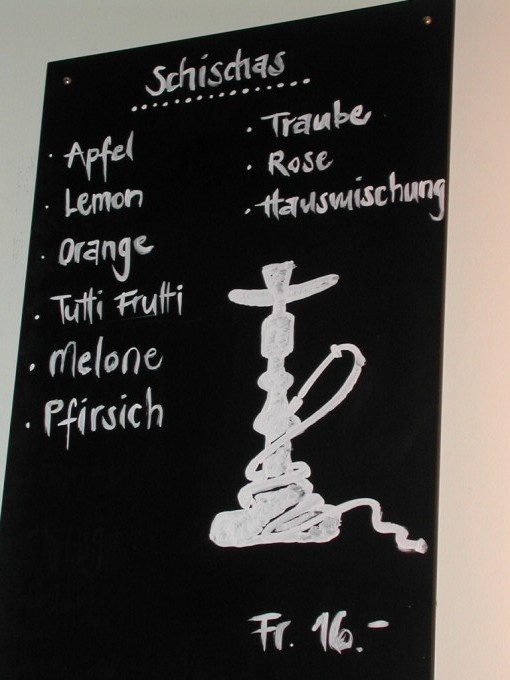 Schischas
· Apfel
· Lemon
· Orange
· Tutti Frutti
· Melone
· Pfirsich
· Traube
· Rose
· Hausmischung
Fr. 16.-